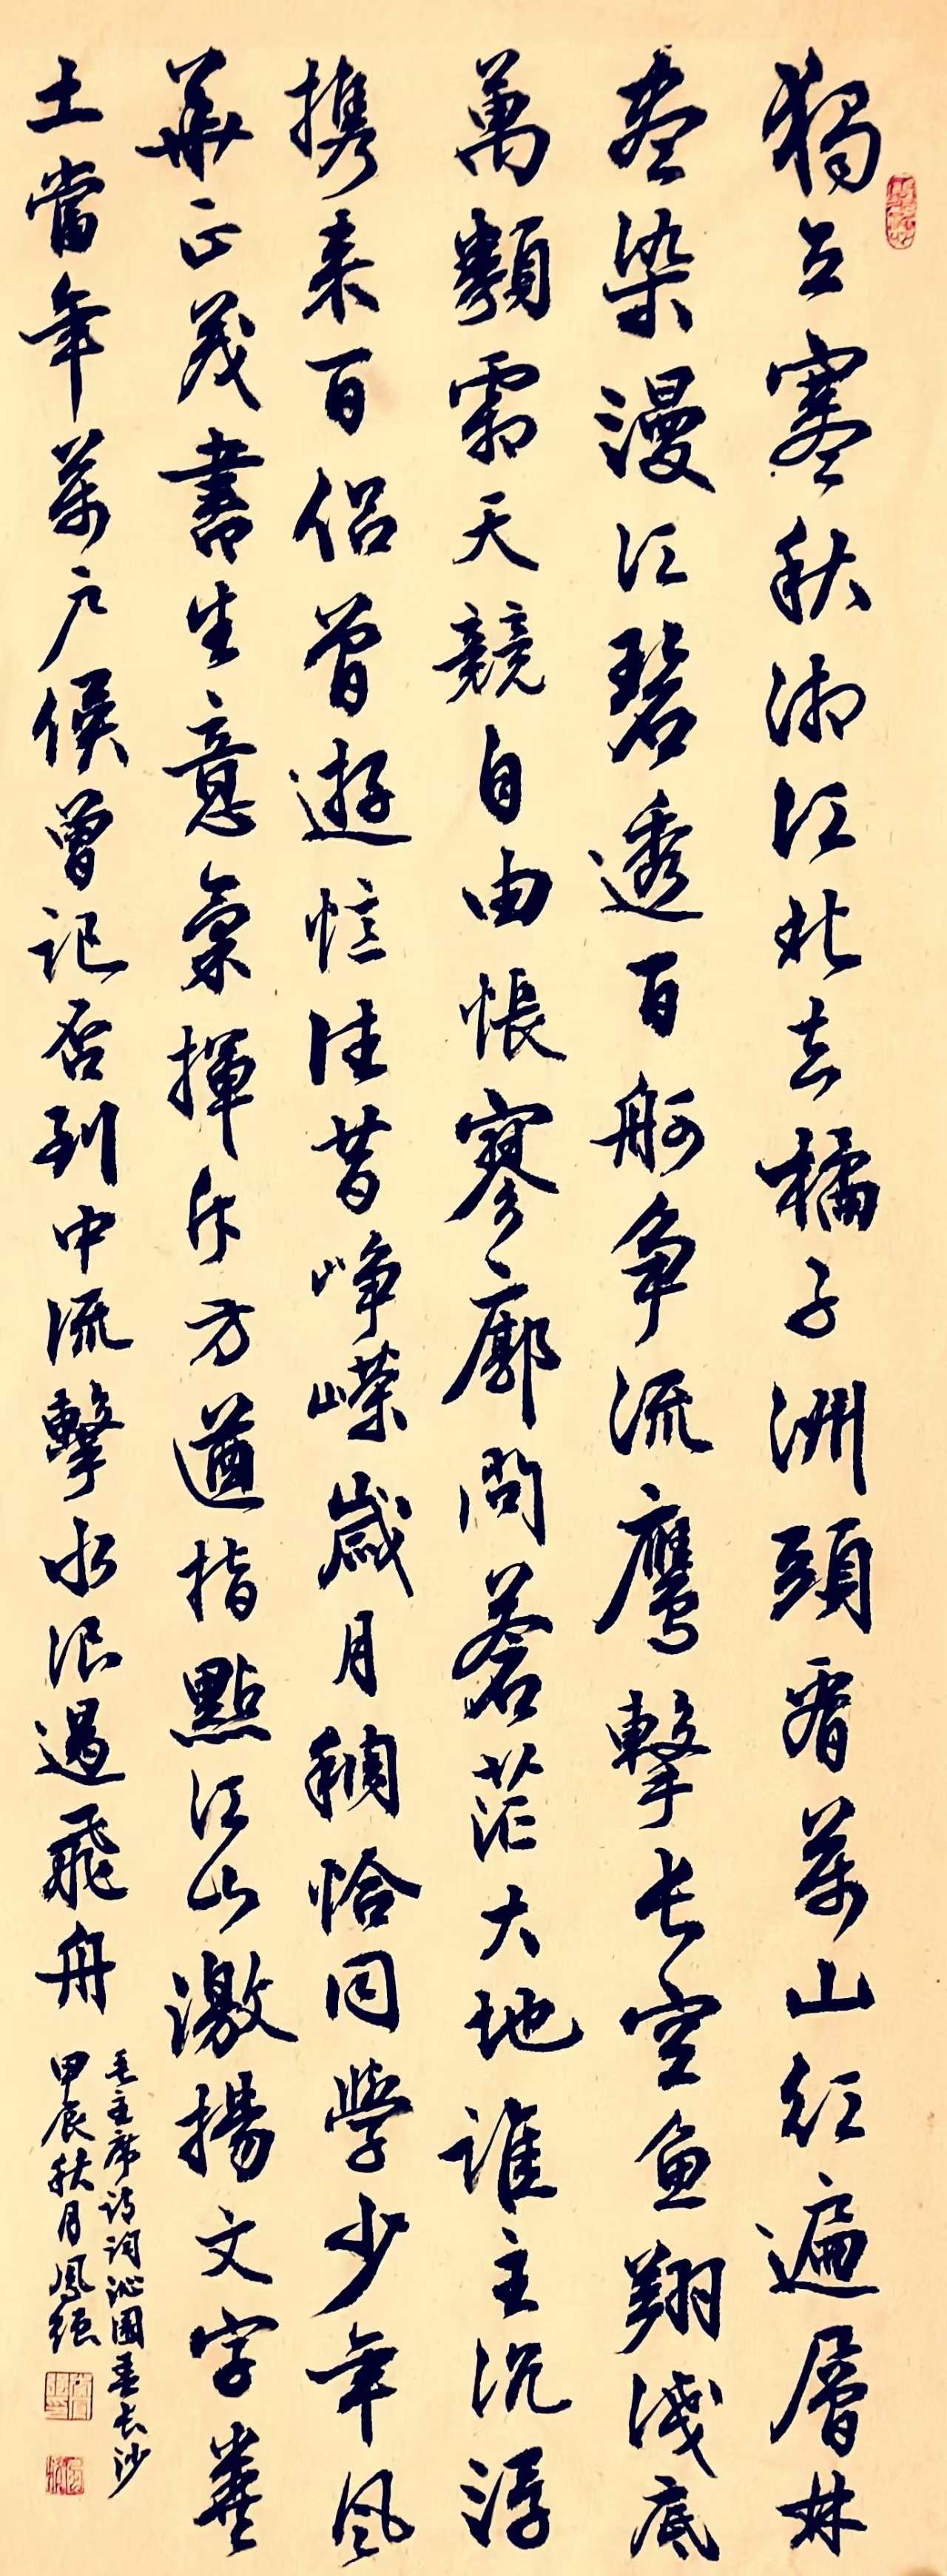 獨立寒秋湘江北去橘子洲頭看萬山紅遍層林
盡染漫江碧透百舸爭流鷹擊長空魚翔淺底
萬類霜天競自由悵寥廓問蒼茫大地誰主沉浮
携來百侶曾遊憶往昔崢嶸歲月稠恰同學少年風
華正茂書生意氣揮斥方遒指點江山激揚文字糞
土當年萬戶侯曾記否到中流擊水浪遏飛舟
毛主席詩詞沁園春長沙
甲辰秋月鳳強